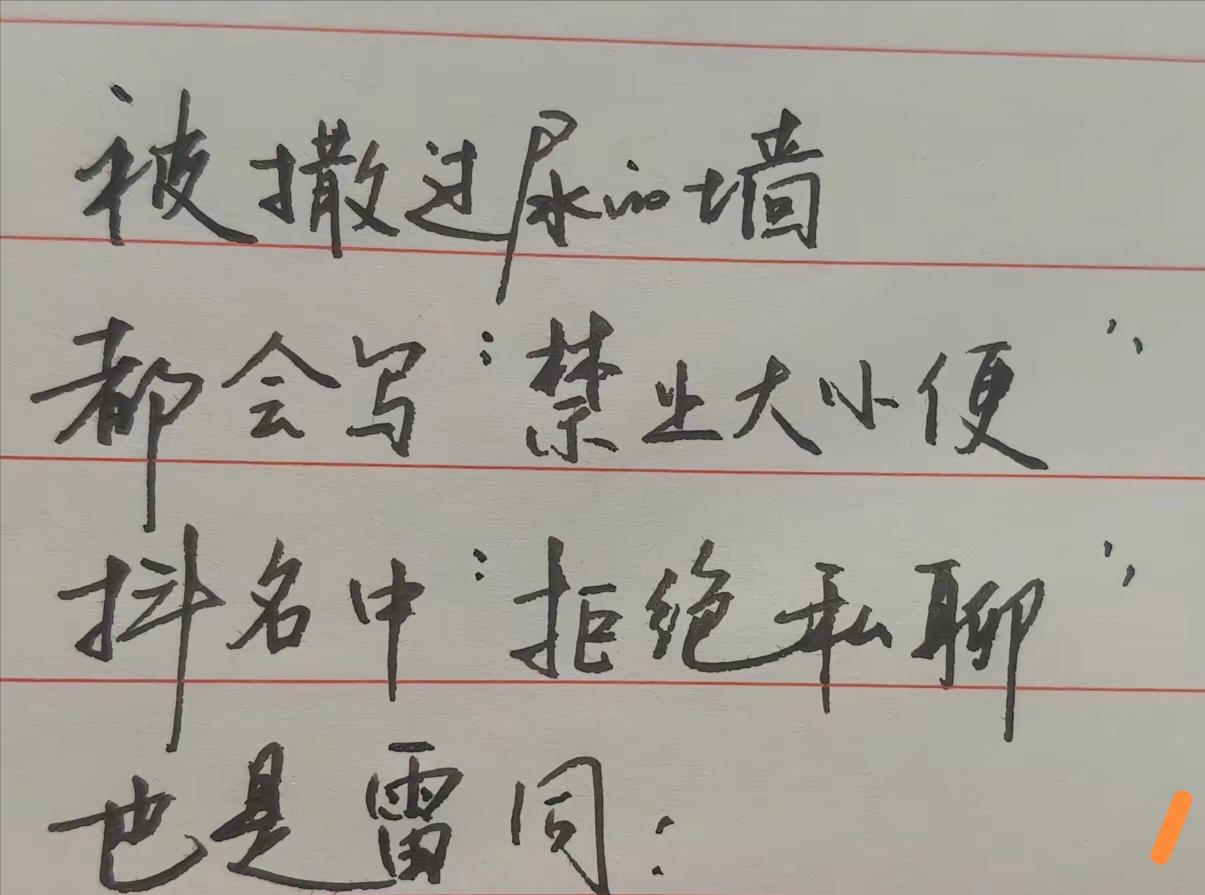 被撒过尿的墙
都会写“禁止大小便”
抖名中“拒绝私聊”
也是雷同：